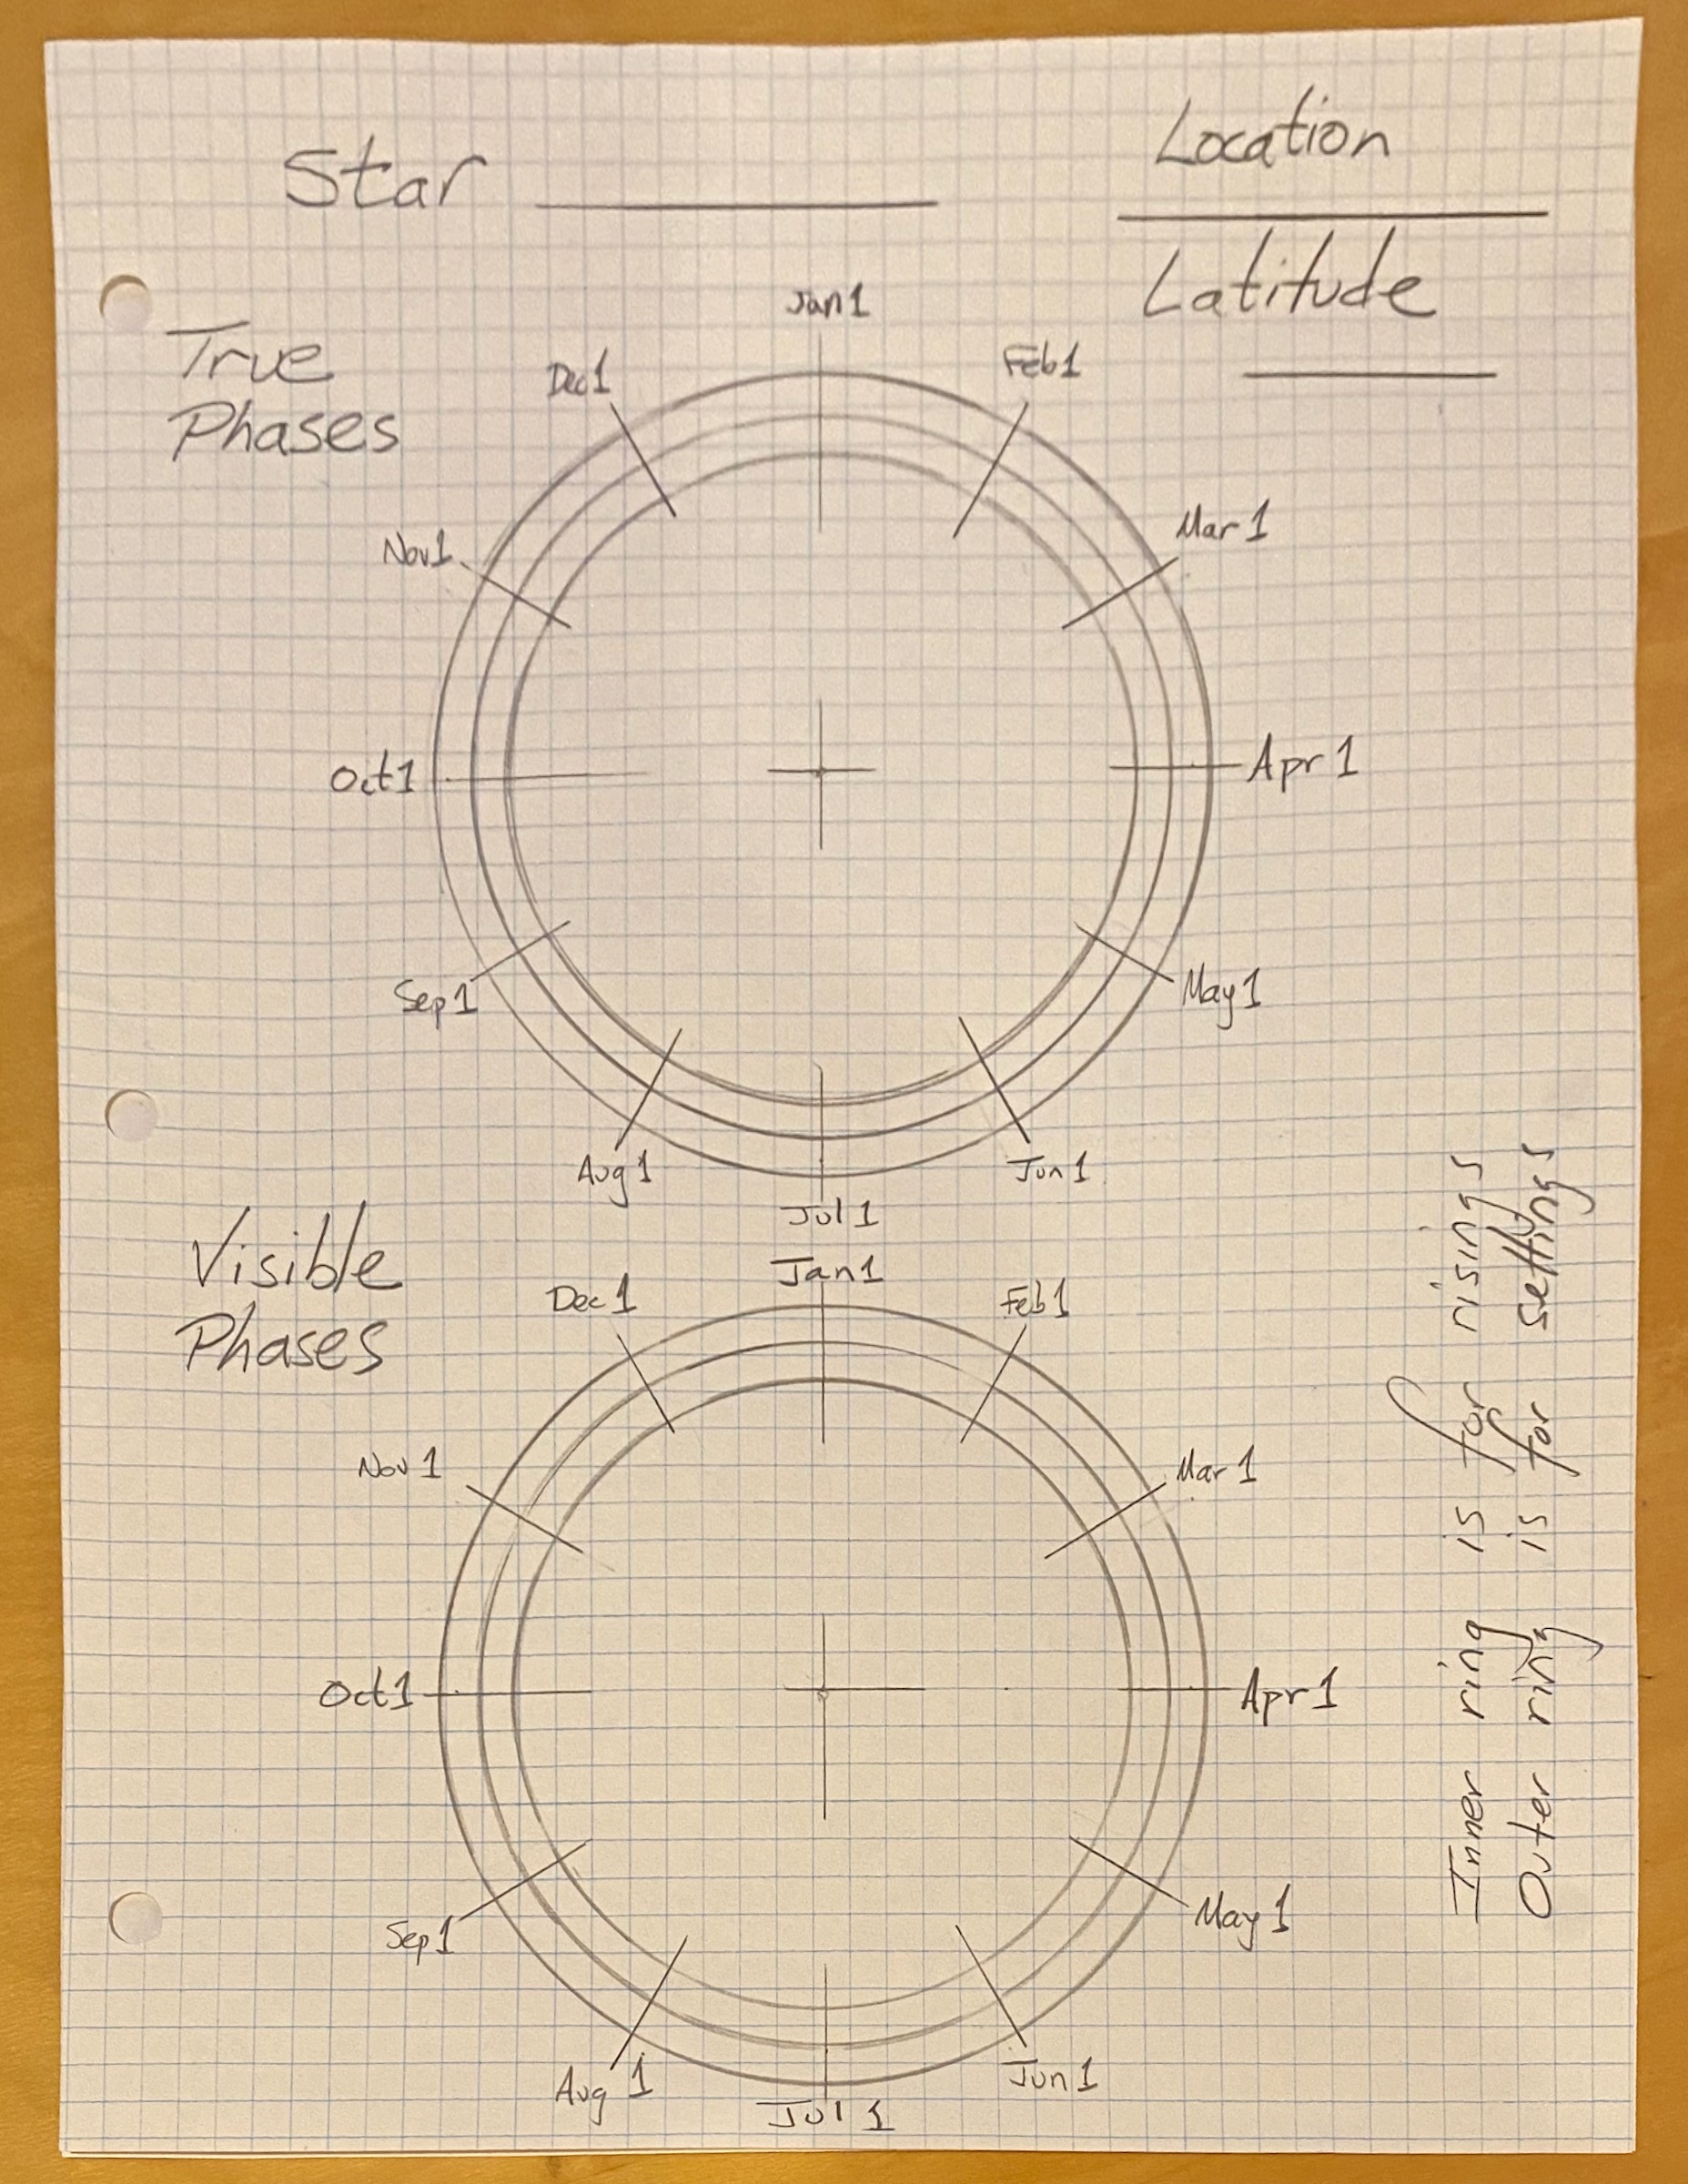 Star
Location
Latitude
True
Phases
Jan 1
Feb 1
Mar 1
Apr 1
May 1
Jun 1
Jul 1
Aug 1
Sep 1
Oct 1
Nov 1
Dec 1
Visible
Phases
Jan 1
Feb 1
Mar 1
Apr 1
May 1
Jun 1
Jul 1
Aug 1
Sep 1
Oct 1
Nov 1
Dec 1
Inner ring is for risings
Outer ring is for settings